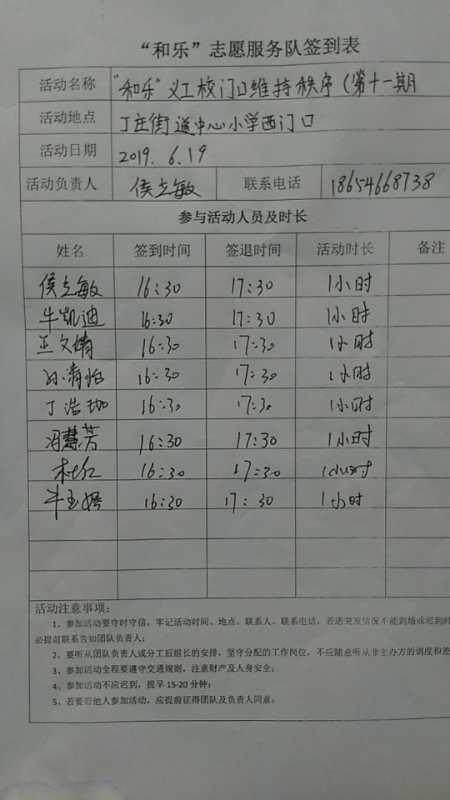 “和乐”志愿服务队签到表
活动名称 “和乐”义工校门口维持秩序（第十一期
活动地点 丁庄街道中心小学西门口
活动日期 2019.6.19
活动负责人 侯立敏 联系电话 18654668738
参与活动人员及时长
姓名 签到时间 签退时间 活动时长 备注
侯立敏 16:30 17:30 1小时
牛凯迪 16:30 17:30 1小时
王文婧 16:30 17:30 1小时
16:30 17:30 1小时
丁浩 16:30 17:30 1小时
冯慧芳 16:30 17:30 1小时
杜红 16:30 17:30 1小时
16:30 17:30 1小时
活动注意事项：
1、参加活动要守时守信，牢记活动时间、地点、联系人、联系电话，若遇突发情况不能到场或迟到时
必提前联系告知团队负责人；
2、要听从团队负责人或分工后组长的安排，坚守分配的工作岗位，不应随意听从非主办方的调度和差
3、参加活动全程要遵守交通规则，注意财产及人身安全；
4、参加活动不应迟到，提早 15-20 分钟；
5、若要若他人参加活动，应提前征得团队及负责人同意；